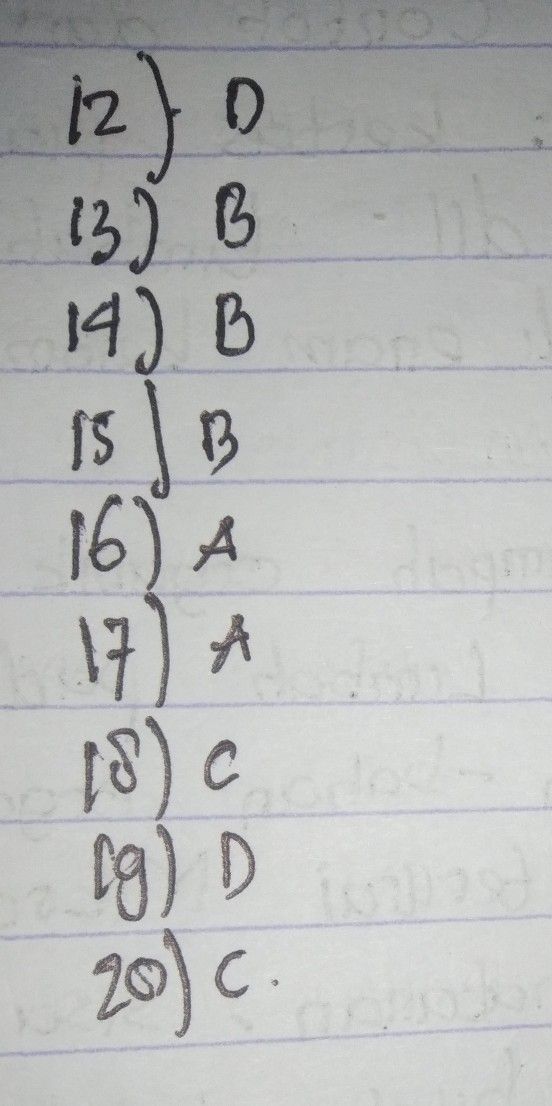 12) D
13) B
14) B
15) B
16) A
17) A
18) C
19) D
20) C.